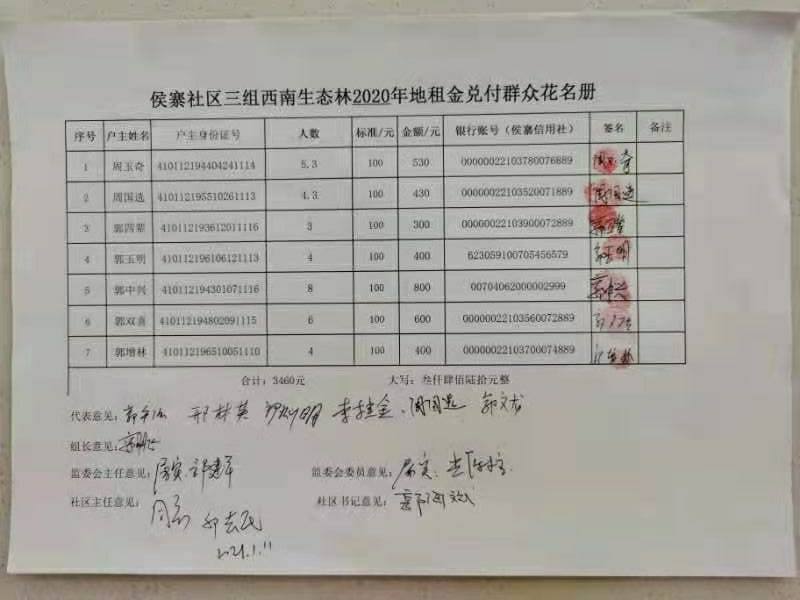 侯寨社区三组西南生态林2020年地租金兑付群众花名册
序号 户主姓名 户主身份证号 人数 标准/元 金额/元 银行账号（侯寨信用社） 签名 备注
1 周玉奇 410112194404241114 5.3 100 530 00000022103780076889 周玉奇
2 周国选 410112195510261113 4.3 100 430 00000022103520071889 周国选
3 郭四犁 410112193612011116 3 100 300 00000022103900072889
4 郭玉明 410112196106121113 4 100 400 623059100705456579 郭玉明
5 郭中兴 410112194301071116 8 100 800 00704062000002999 郭中兴
6 郭双喜 410112194802091115 6 100 600 00000022103560072889
7 郭增林 410112196510051110 4 100 400 00000022103700074889
合计：3460元 大写：叁仟肆佰陆拾元整
代表意见： 邢林英 李桂金 周国选 郭文龙
组长意见：
监委会主任意见： 监委会委员意见：
社区主任意见： 社区书记意见：
2021.1.11